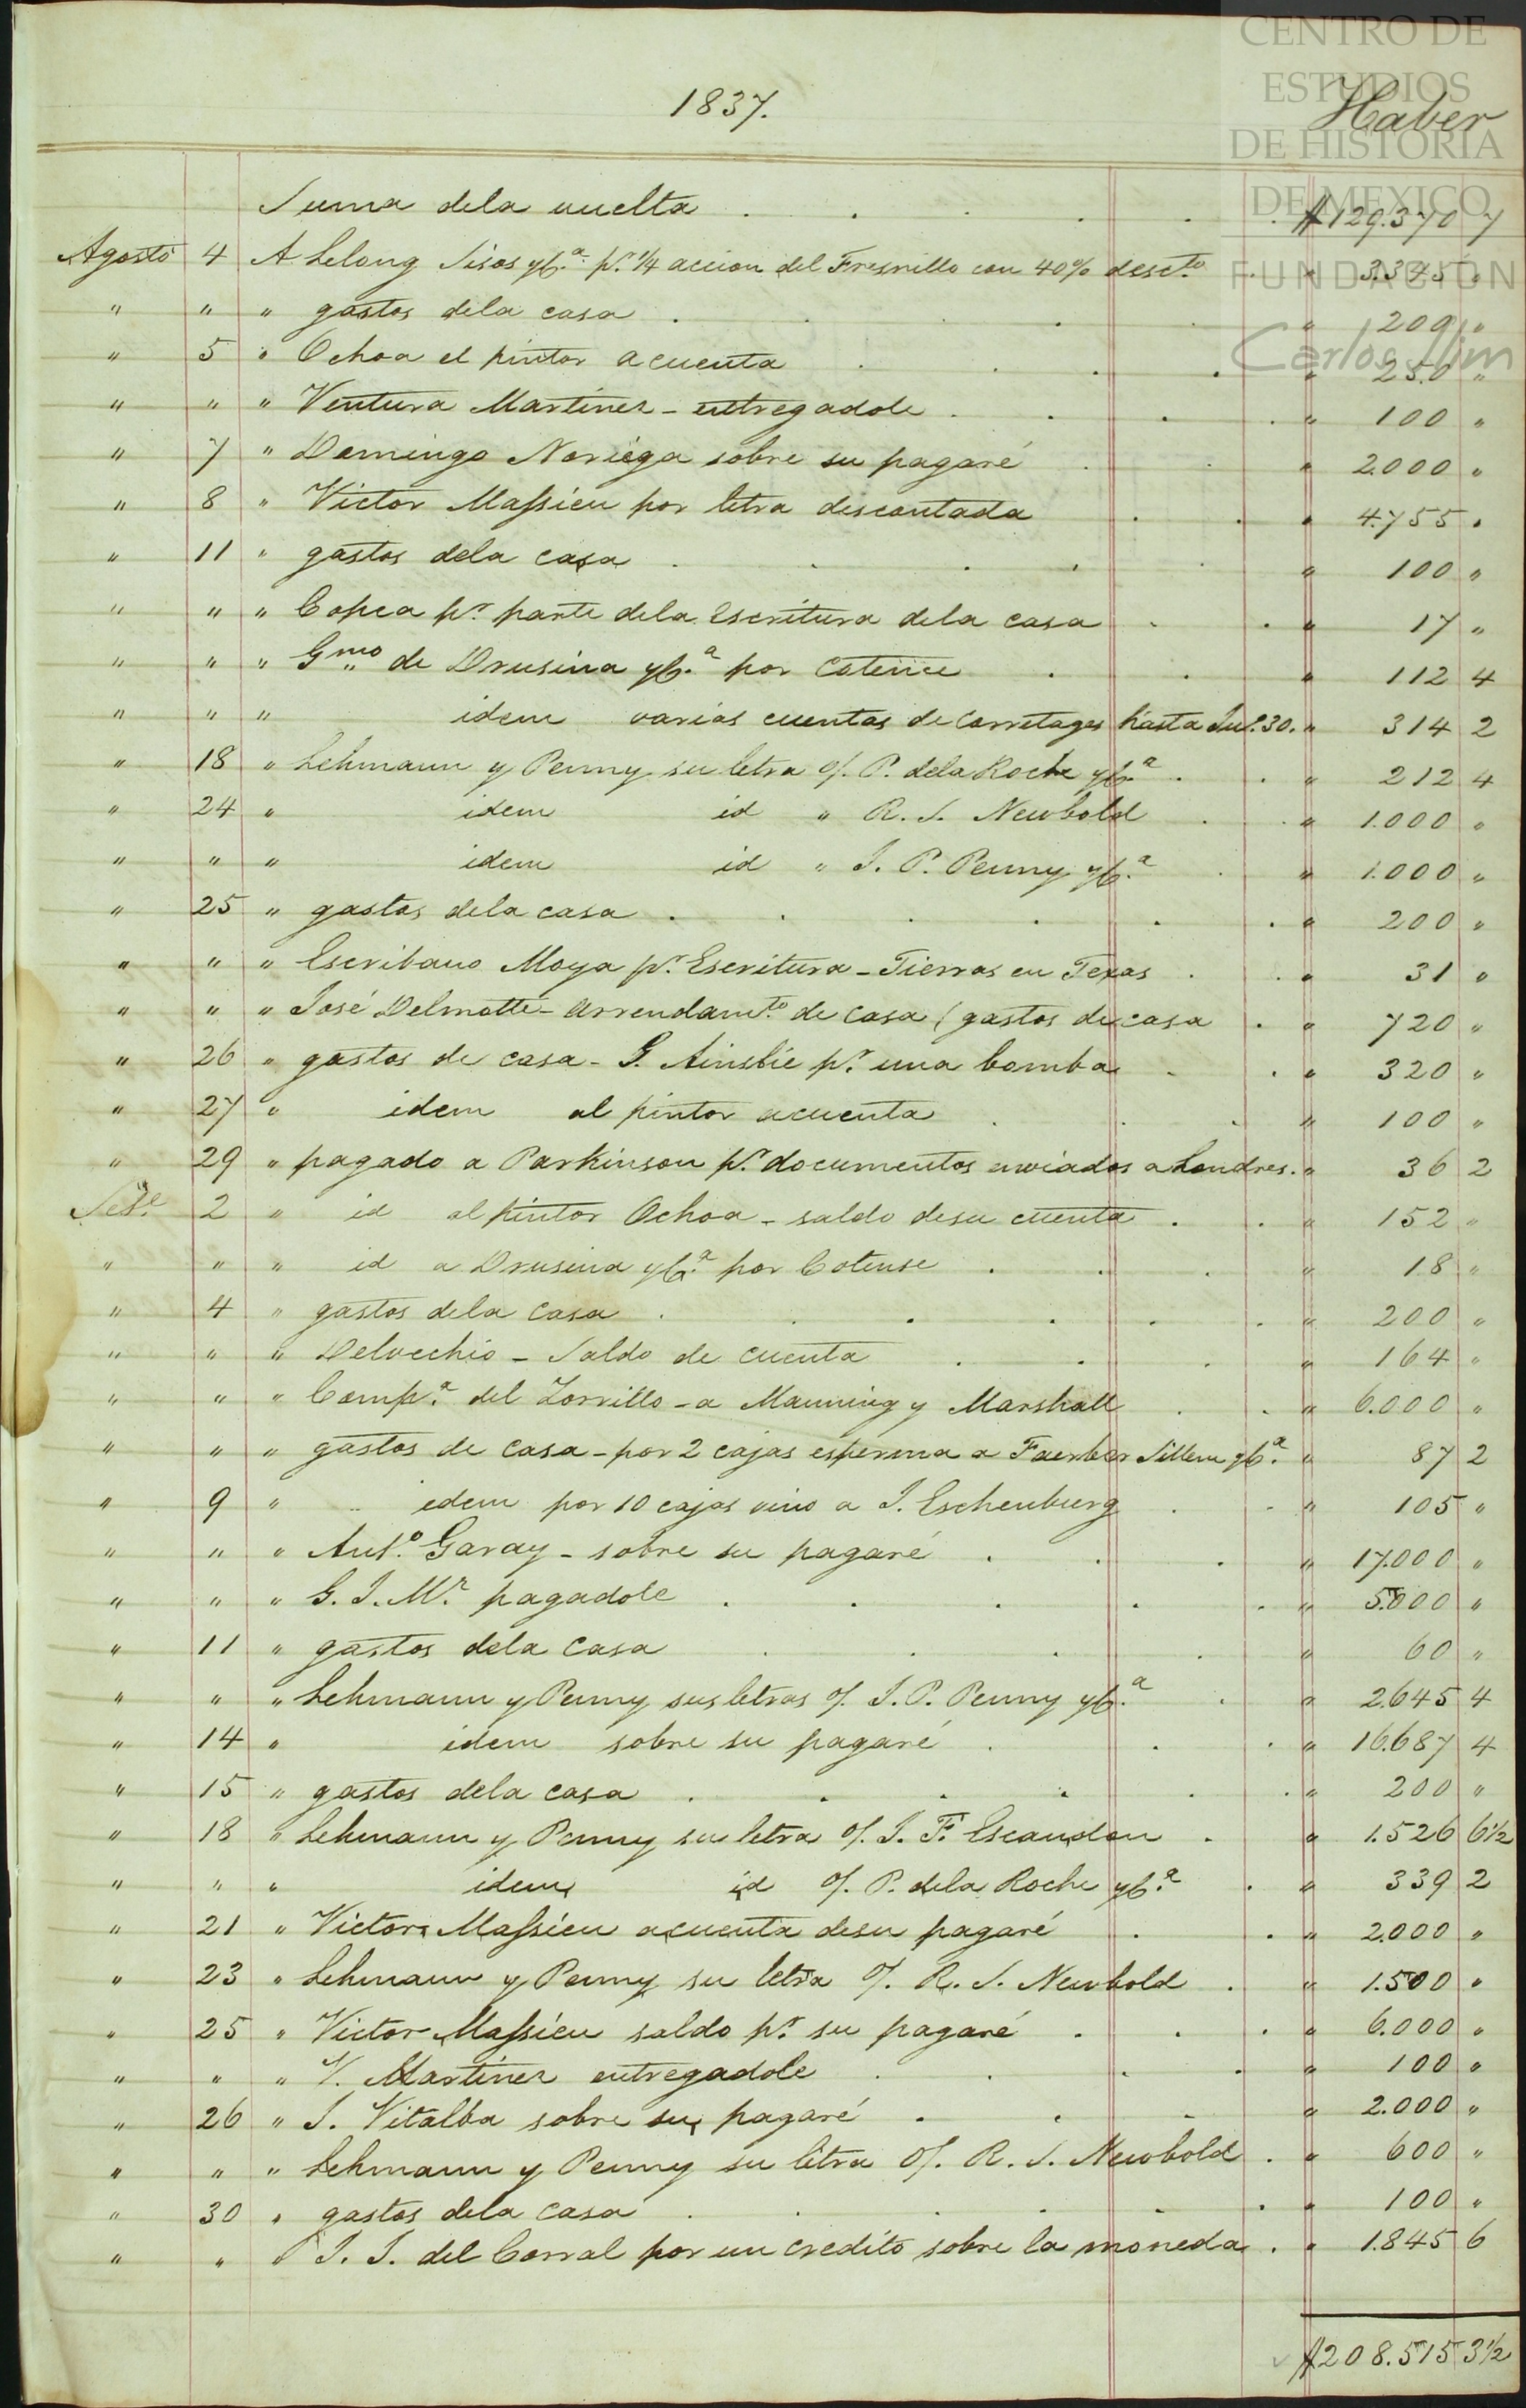 CENTRO DE
ESTUDIOS
DE HISTORIA
DE MEXICO
FUNDACIÓN
Carlos Slim
1837.
Haber
Suma dela vuelta . . . . . $ 129.370 7
Agosto 4 A Lelong Sisos yCa. pr. 1/4 accion del Fresnillo con 40% desc.to . " 3.345 "
" " " gastos dela casa . . . . " 209 "
" 5 " Ochoa el pintor acuenta . . . . " 250 "
" " " Ventura Martinez - entregadole . . . . " 100 "
" 7 " Domingo Noriega sobre su pagaré . . " 2.000 "
" 8 " Victor Massieu por letra descontada . . " 4.755 "
" 11 " gastos dela casa . . . . . " 100 "
" " " Copca pr. parte dela Escritura dela casa . . " 17 "
" " " Gmo. de Drusina yCa. por Cotence . . " 112 4
" " " idem varias cuentas de Corretages hasta Jul. 30. " 314 2
" 18 " Lehmann y Penny su letra o/. P. dela Roche yCa. . . " 212 4
" 24 " idem id " R. S. Newbold . . " 1.000 "
" " " idem id " J. P. Penny yCa. . " 1.000 "
" 25 " gastos dela casa . . . . . . " 200 "
" " " Escribano Moya pr. Escritura - Tierras en Texas . . " 31 "
" " " José Delmotte - arrendam.to de casa (gastos de casa . " 720 "
" 26 " gastos de casa - G. Ainslie pr. una bomba . . " 320 "
" 27 " idem al pintor acuenta . . . " 100 "
" 29 " pagado a Parkinson pr. documentos enviados a Londres. " 36 2
Set.e 2 " id al pintor Ochoa - saldo desu cuenta . . " 152 "
" " " id a Drusina yCa. por Cotense . . . " 18 "
" 4 " gastos dela casa . . . . . . " 200 "
" " " Delvecchio - Saldo de cuenta . . . " 164 "
" " " Comp.a del Zorrillo - a Manning y Marshall . . " 6.000 "
" " " gastos de casa - por 2 cajas esperma a Faerber Sillem yCa. " 87 2
" 9 " idem por 10 cajas vino a J. Eschenburg . . " 105 "
" " " Ant.o Garay - sobre su pagaré . . . " 17.000 "
" " " G. J. Mr. pagadole . . . . . " 5.000 "
" 11 " gastos dela casa . . . . " 60 "
" " " Lehmann y Penny sus letras o/. J. P. Penny yCa. . " 2.645 4
" 14 " idem sobre su pagaré . . . " 16.687 4
" 15 " gastos dela casa . . . . . . " 200 "
" 18 " Lehmann y Penny su letra o/. J. F. Escandon . " 1.526 6½
" " " idem id o/. P. dela Roche yCa. . " 339 2
" 21 " Victor Massieu acuenta desu pagaré . . " 2.000 "
" 23 " Lehmann y Penny su letra o/. R. S. Newbold . " 1.500 "
" 25 " Victor Massieu saldo pr. su pagaré . . . " 6.000 "
" " " V. Martinez entregadole . . . . " 100 "
" 26 " J. Vitalba sobre su pagaré . . . " 2.000 "
" " " Lehmann y Penny su letra o/. R. S. Newbold . " 600 "
" 30 " gastos dela casa . . . . . " 100 "
" " " J. J. del Corral por un credito sobre la moneda . " 1.845 6
$ 208.515 3½